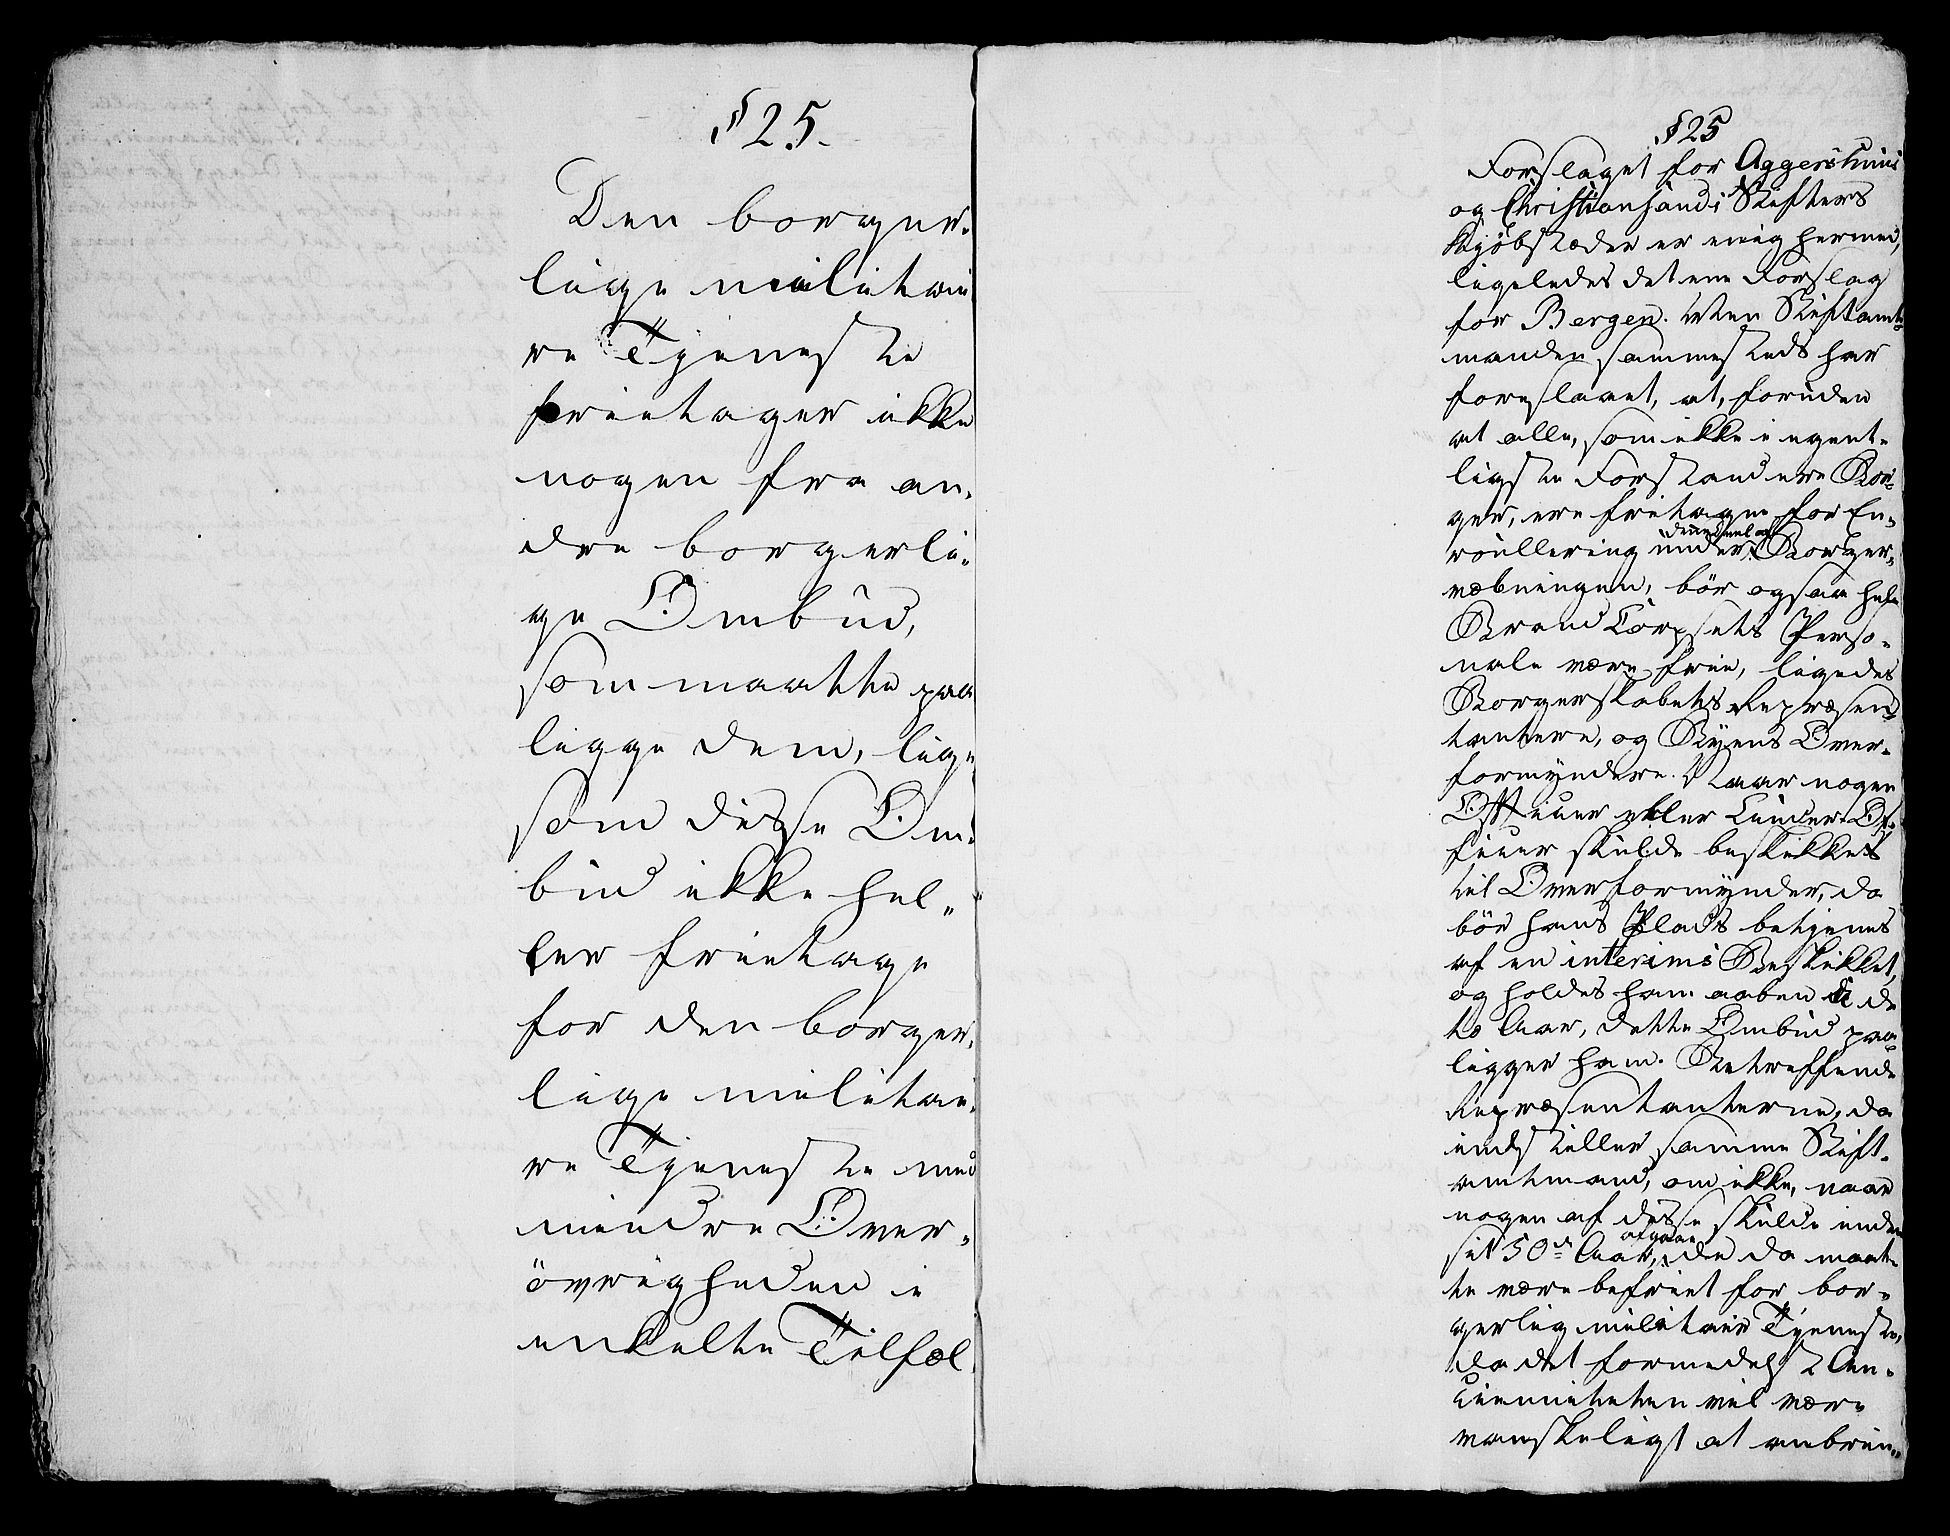 § 25.
Den borger-
lige militai
re Tjeneste
frietager ikke
nogen fra an-
dre borgerli-
ge Ombud,
som maatte paa
ligge dem, lige
som disse Om-
bud ikke hel-
ler frietage
for den borger-
lige militai-
re Tjeneste med
mindre Over-
övrigheden i
enkelte Tilfæl
§ 25
Forslaget for Aggershuus
og Christiansands Stifters
Kjöbstæder er enig hermed,
ligeledes det ene Forslag
for Bergen. Men Stiftamt-
manden sammesteds har
foreslaaet, at, foruden
at alle, som ikke i egent-
ligste Forstand ere Bor-
ger, ere fritagne for En-
roullering under Borger-
væbningen, bör ogsaa hele
Brand Corpsets Perso-
nale være frie, ligedes
Borgerskabets Repræsen-
tantere, og Byens Over-
formyndere. Naar nogen
Officeer eller Under-Of-
ficeer skulde beskikkes
til Overformynder, da
bör hans Plads betjenes
af en interims Beskikket,
og holdes ham aaben i de
to Aar, dette Ombud paa
ligger ham. Betreffende
Repræsentanterne, da
indstiller samme Stift-
amtmand, om ikke, naar
nogen af disse skulde inden
sit 50de Aar, afgaae, de da maat-
te være befriet for bor-
gerlig militair Tjeneste,
da det formedelst An-
cienniteten vil være
vanskeligt at anbrin-